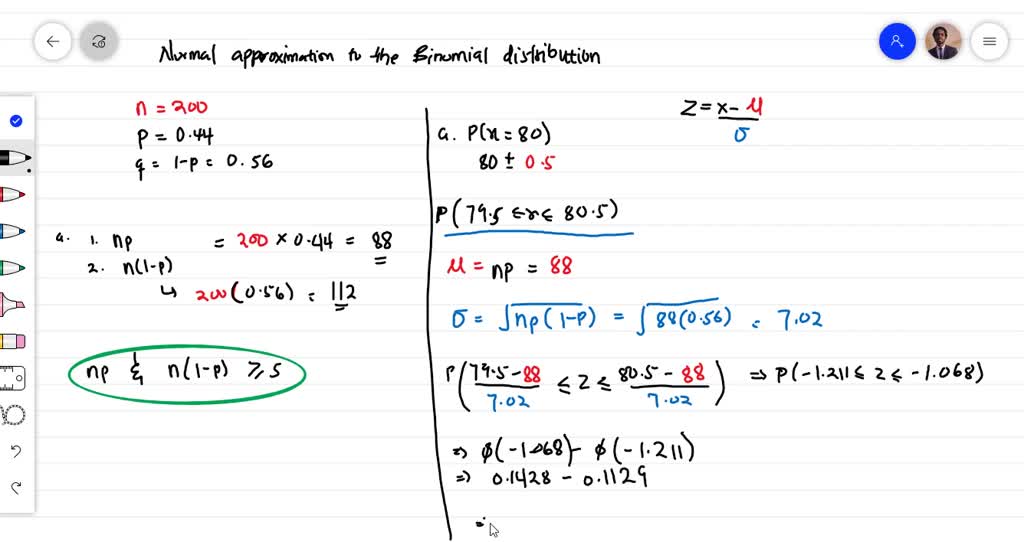 Normal approximation to the Binomial distribution
n = 200
p = 0.44
q = 1-p = 0.56
a. 1. np = 200 × 0.44 = 88
2. n(1-p)
↳ 200(0.56) = 112
np & n(1-p) ≥ 5
Z = x-μ / σ
a. P(x = 80)
80 ± 0.5
P(79.5 ≤ x ≤ 80.5)
μ = np = 88
σ = √np(1-p) = √88(0.56) = 7.02
P(79.5-88 / 7.02 ≤ Z ≤ 80.5-88 / 7.02) ⇒ P(-1.211 ≤ Z ≤ -1.068)
⇒ φ(-1.068) - φ(-1.211)
⇒ 0.1428 - 0.1129
=